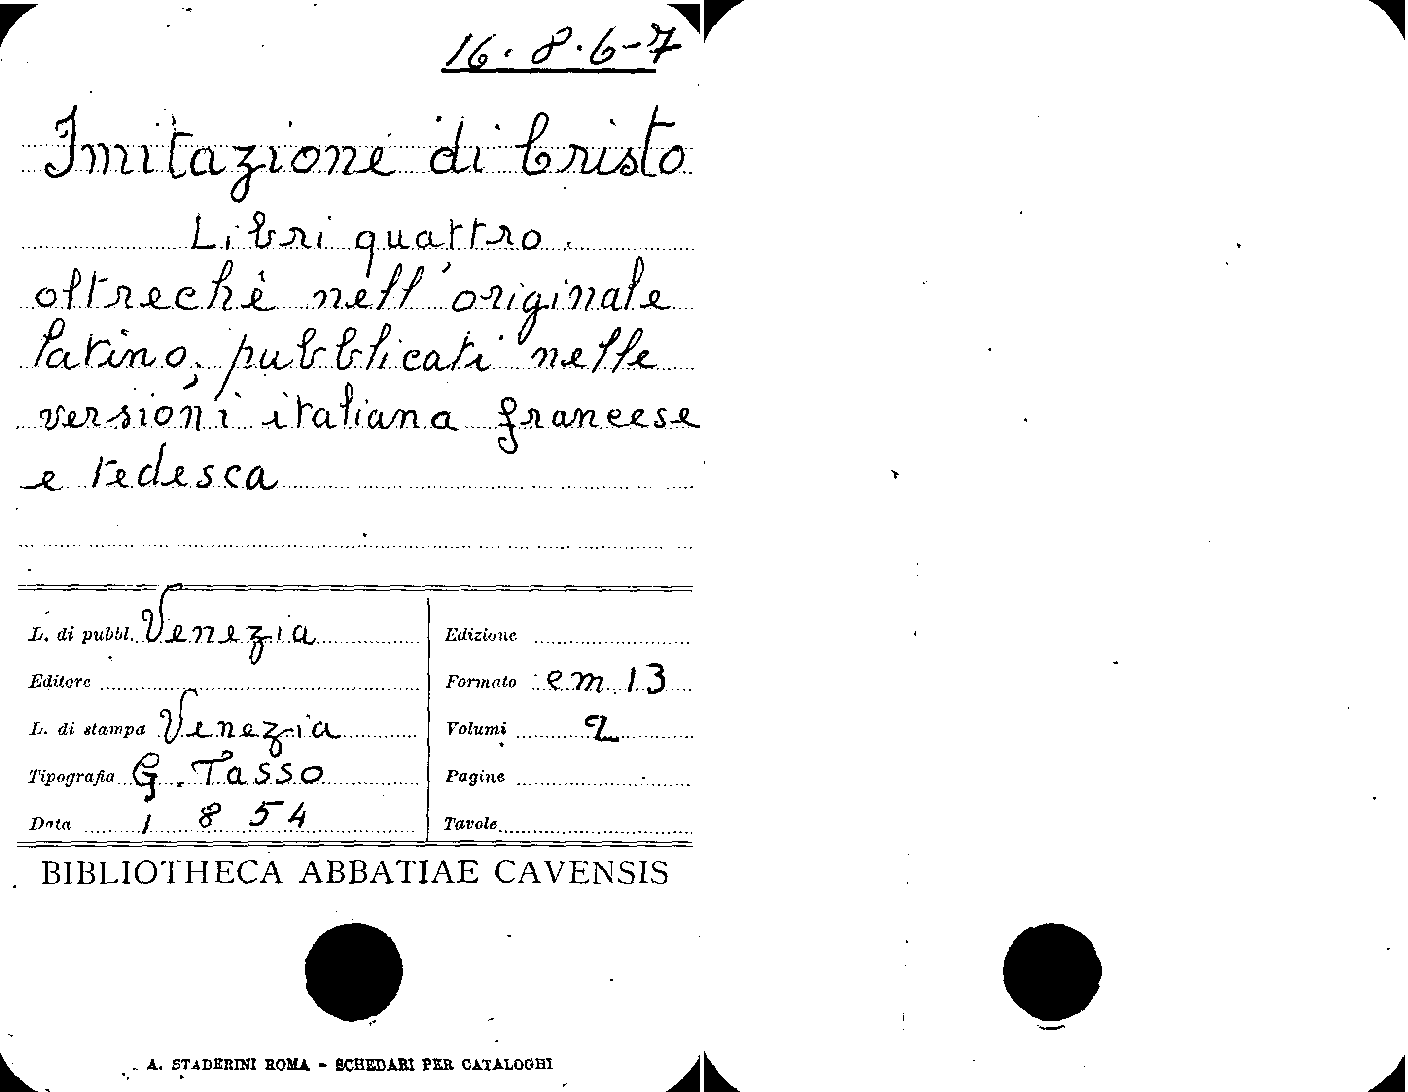 16.8.6-7
Imitazione di Cristo
Libri quattro.
oltrechè nell'originale
latino, pubblicati nelle
versioni italiana francese
e tedesca
L. di pubbl. Venezia
Editore
L. di stampa Venezia
Tipografia G. Tasso
Data 1854
Edizione
Formato em 13
Volumi 2
Pagine
Tavole
BIBLIOTHECA ABBATIAE CAVENSIS
A. STADERINI ROMA - SCHEDARI PER CATALOGHI